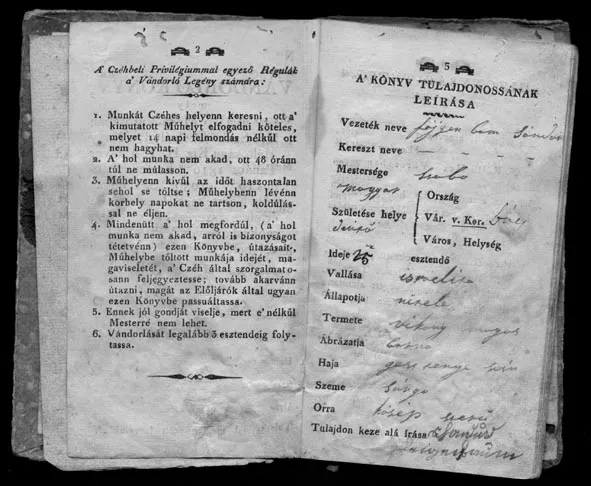 2
A' Czéhbeli Privilégiummal egyező Régulák
a' Vándorló Legény számára:
1. Munkát Czéhes helyenn keresni, ott a'
kimutatott Műhelyt elfogadni köteles,
melyet 14 napi felmondás nélkűl ott
nem hagyhat.
2. A' hol munka nem akad, ott 48 óránn
túl ne múlasson.
3. Műhelyenn kívűl az időt haszontalan
sehol se tőltse; Műhelybenn lévénn
korhely napokat ne tartson, koldúlás-
sal ne éljen.
4. Mindenütt a' hol megfordúl, (a' hol
munka nem akad, arról is bizonyságot
tétetvénn) ezen Könyvbe, útazásait,
Műhelybe tőltött munkája idejét, ma-
gaviseletét, a' Czéh által szorgalmatos-
sann feljegyeztesse; tovább akarvánn
útazni, magát az Előljárók által ugyan
ezen Könyvbe passuáltassa.
5. Ennek jól gondját viselje, mert e' nélkűl
Mesterré nem lehet.
6. Vándorlását legalább 3 esztendeig foly-
tassa.
5
A' KÖNYV TULAJDONOSSÁNAK
LEÍRÁSA
Vezeték neve Sándor
Kereszt neve
Mestersége szabó
magyar Ország
Születése helye Vár. v. Ker. Bács
Város, Helység
Ideje 25 esztendő
Vallása
Állapotja
Termete vékony magas
Ábrázatja
Haja
Szeme sárga
Orra közép
Tulajdon keze alá írása